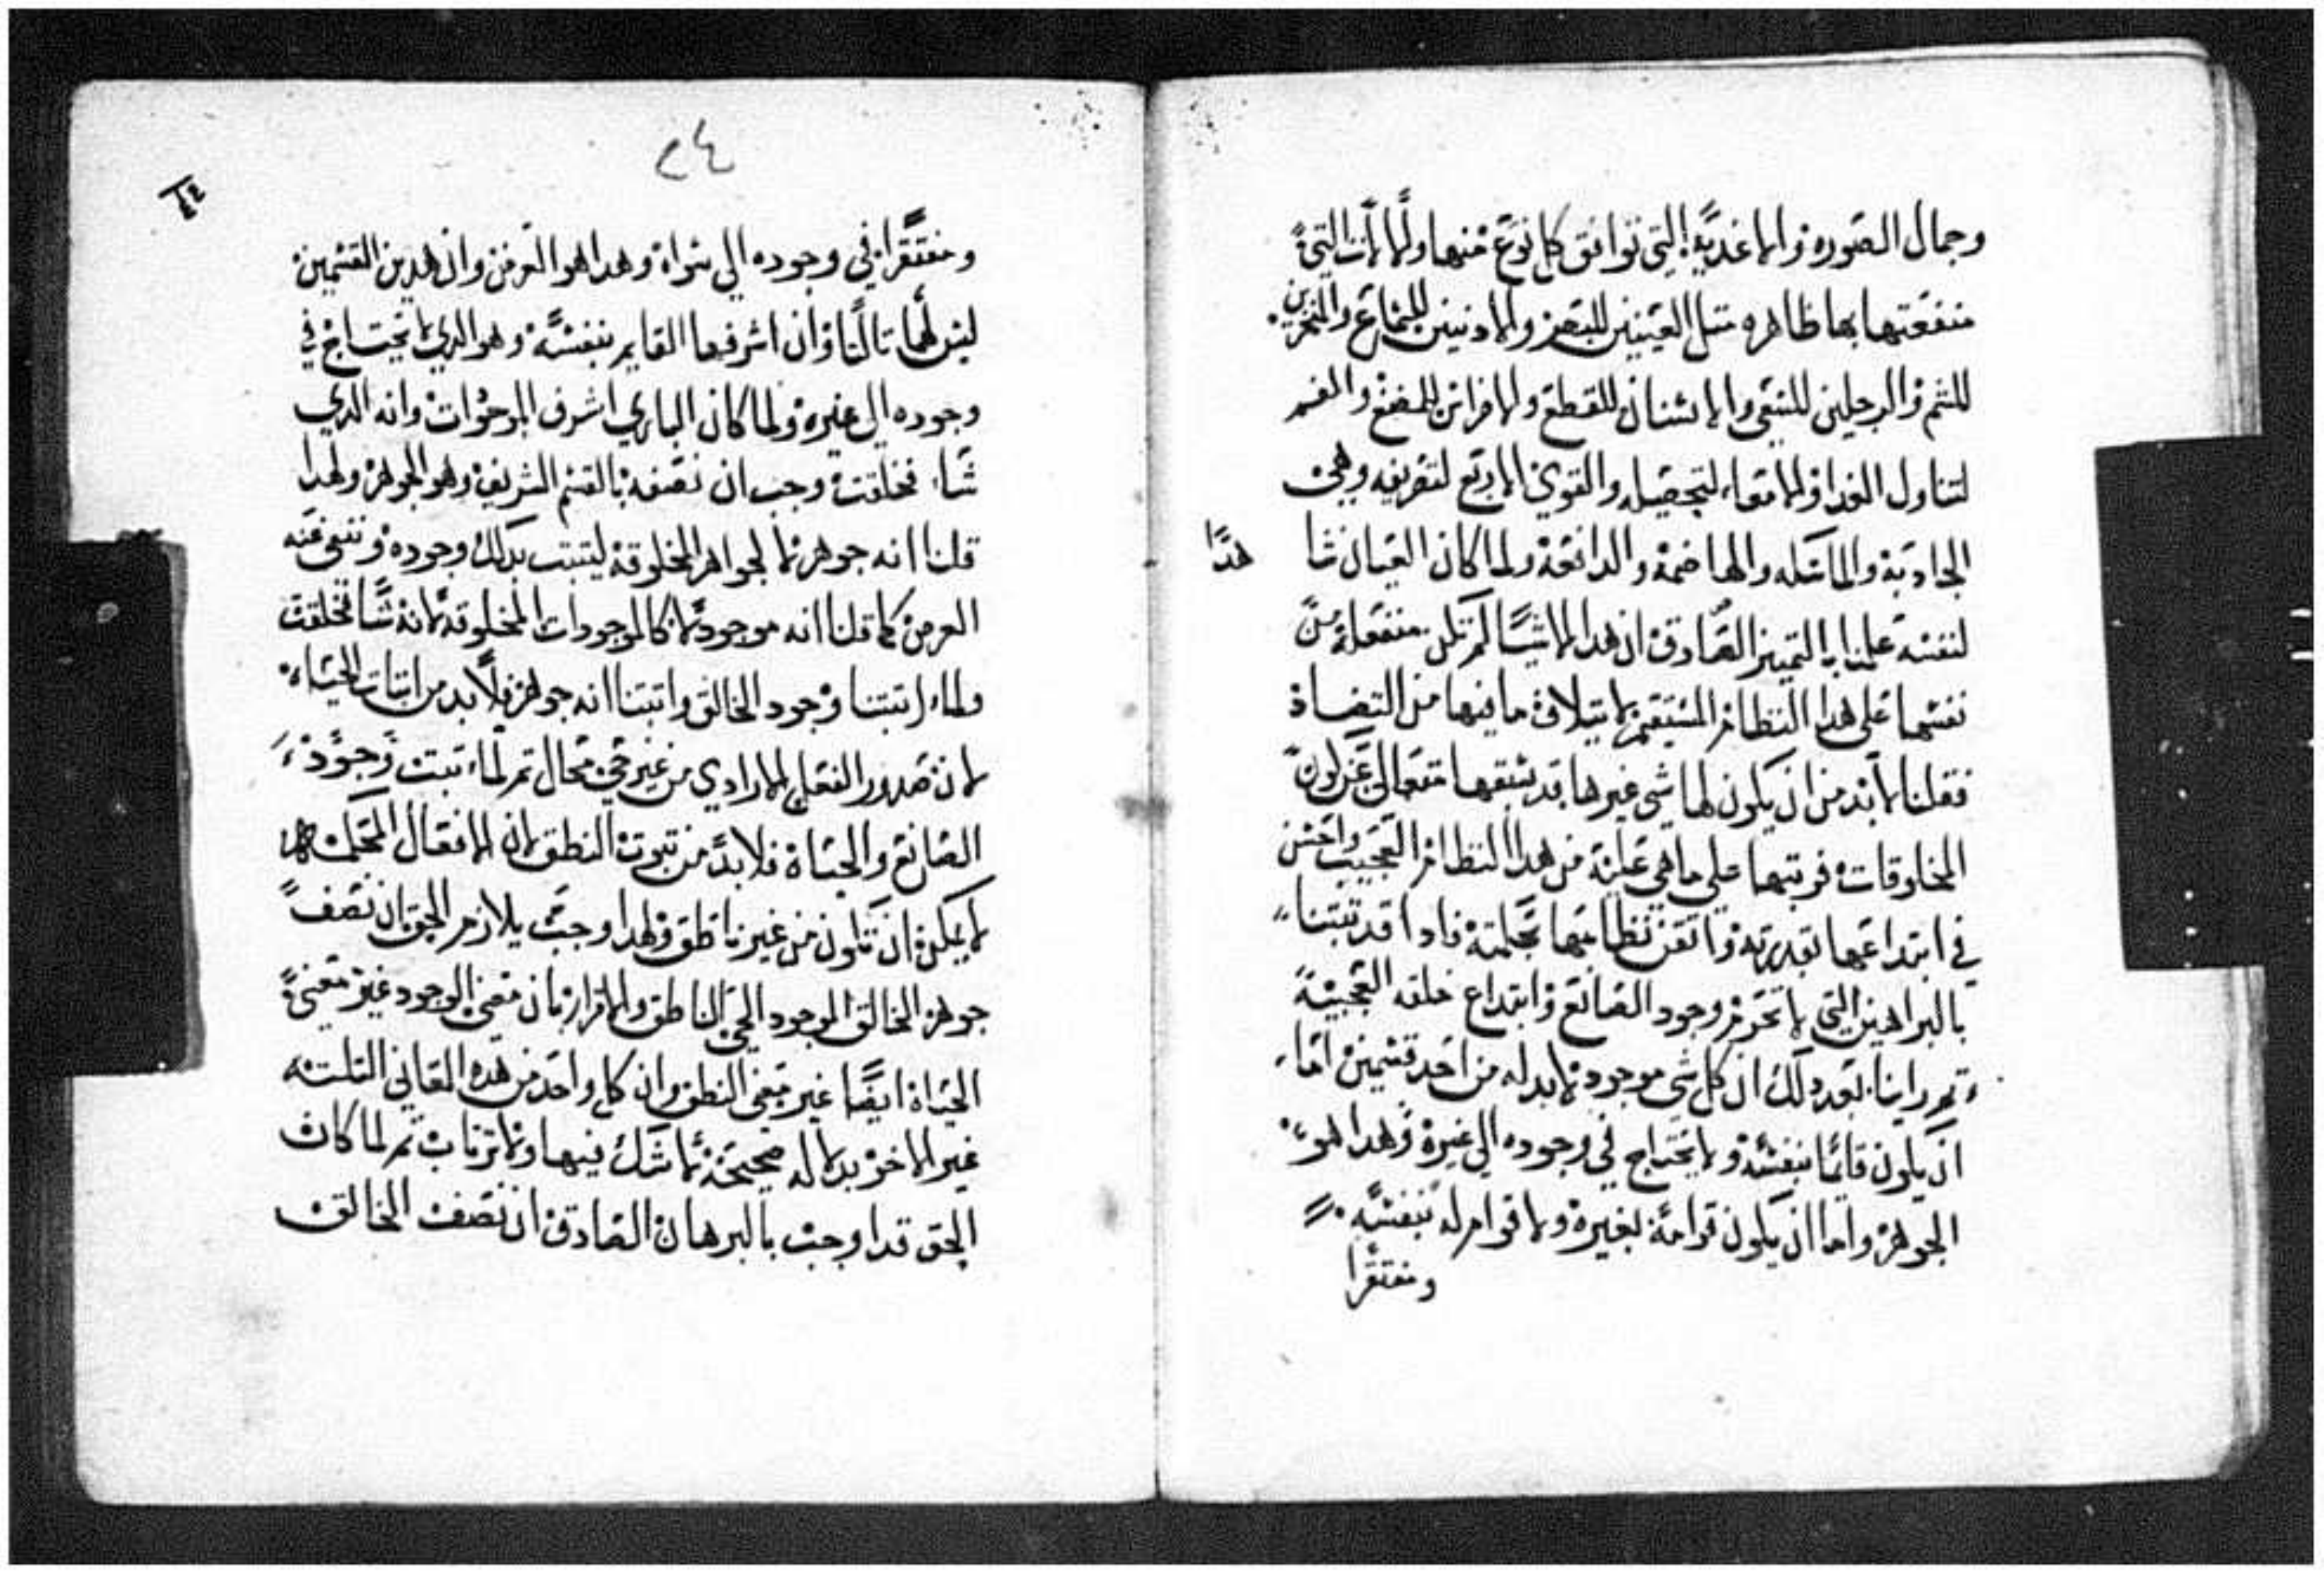 وجمال الصوره والاغدية التي توافق كل نوع منها والالات التي
منفعتها بها ظاهره متل العينين للبصر والادنين للسماع والمنخرين
للشم والرجلين للسعي والاسنان للقطع والاضراس للمضغ والفم
لتناول الغدا والامعاء لتحصيله والقوي الاربع لتصريفه وهي
الجادبة والماسكه والهاضمة والدافعة ولما كان العيان شا
هدا
لنفسه علمنا بالتمييز الصادق ان هدا الاشيا لم تكن منفعلة من
نفسها على هدا النظام المستقيم لاختلاف ما فيها من التضاد
فقلنا لابد من ان يكون لها شي غيرها قد سبقها متعالى عن كون
المخلوقات فرتبها علي ما هي عليه من هدا النظام العجيب واحسن
في ابتداعها بقدرته واتقن نظامها بحكمته فادا قد تبتنا
بالبراهين التي وجود الصانع وابتداع خلقه العجيبة
تم راينا بعد دلك ان كل شي موجود لابد له من احد قسمين اما
ان يكون قائما بنفسه ولا يحتاج في وجوده الي غيره وهدا هو
الجوهر واما ان يكون قوامه لغيره ولا قوام له بنفسه
ومفتقرا
٢٤
٢٤
ومفتقرا في وجوده الي سواه وهدا هو العرض وان هدين القسمين
ليس لهما تالتا وان اشرفها القايم بنفسه وهو الدي لا يحتاج في
وجوده الي غيره ولما كان الباري اشرف الموجوات وانه الدي
شا فخلقت وجب ان نصفه بالقسم الشريف وهو الجوهر ولهدا
قلنا انه جوهر لا كالجواهر المخلوقة ليتبت بدلك وجوده وننفي عنه
العرض كما قلنا انه موجود لا كالموجودات المخلوقه لانه شا فخلقت
ولما اتبتنا وجود الخالق واتبتنا انه جوهر فلا بد من اتبات الحياه
لان صدور الفعل الارادي من غير حي محال تم لما تبت وجود
الصانع والحياة فلا بد من تبوت النطق لان الافعال المحكمه
لا يمكن ان تكون من غير ناطق ولهدا وجب بلازم الحق ان نصف
جوهر الخالق الموجود الحي الناطق والاقرار بان معنى الوجود غير معنى
الحياة ايضا غير معني النطق وان كل واحد من هده المعاني التلته
غير الاخر بدلاله صحيحة لا شك فيها ولا ترتاب تم لما كان
الحق قد اوجب بالبرهان الصادق ان نصف الخالق